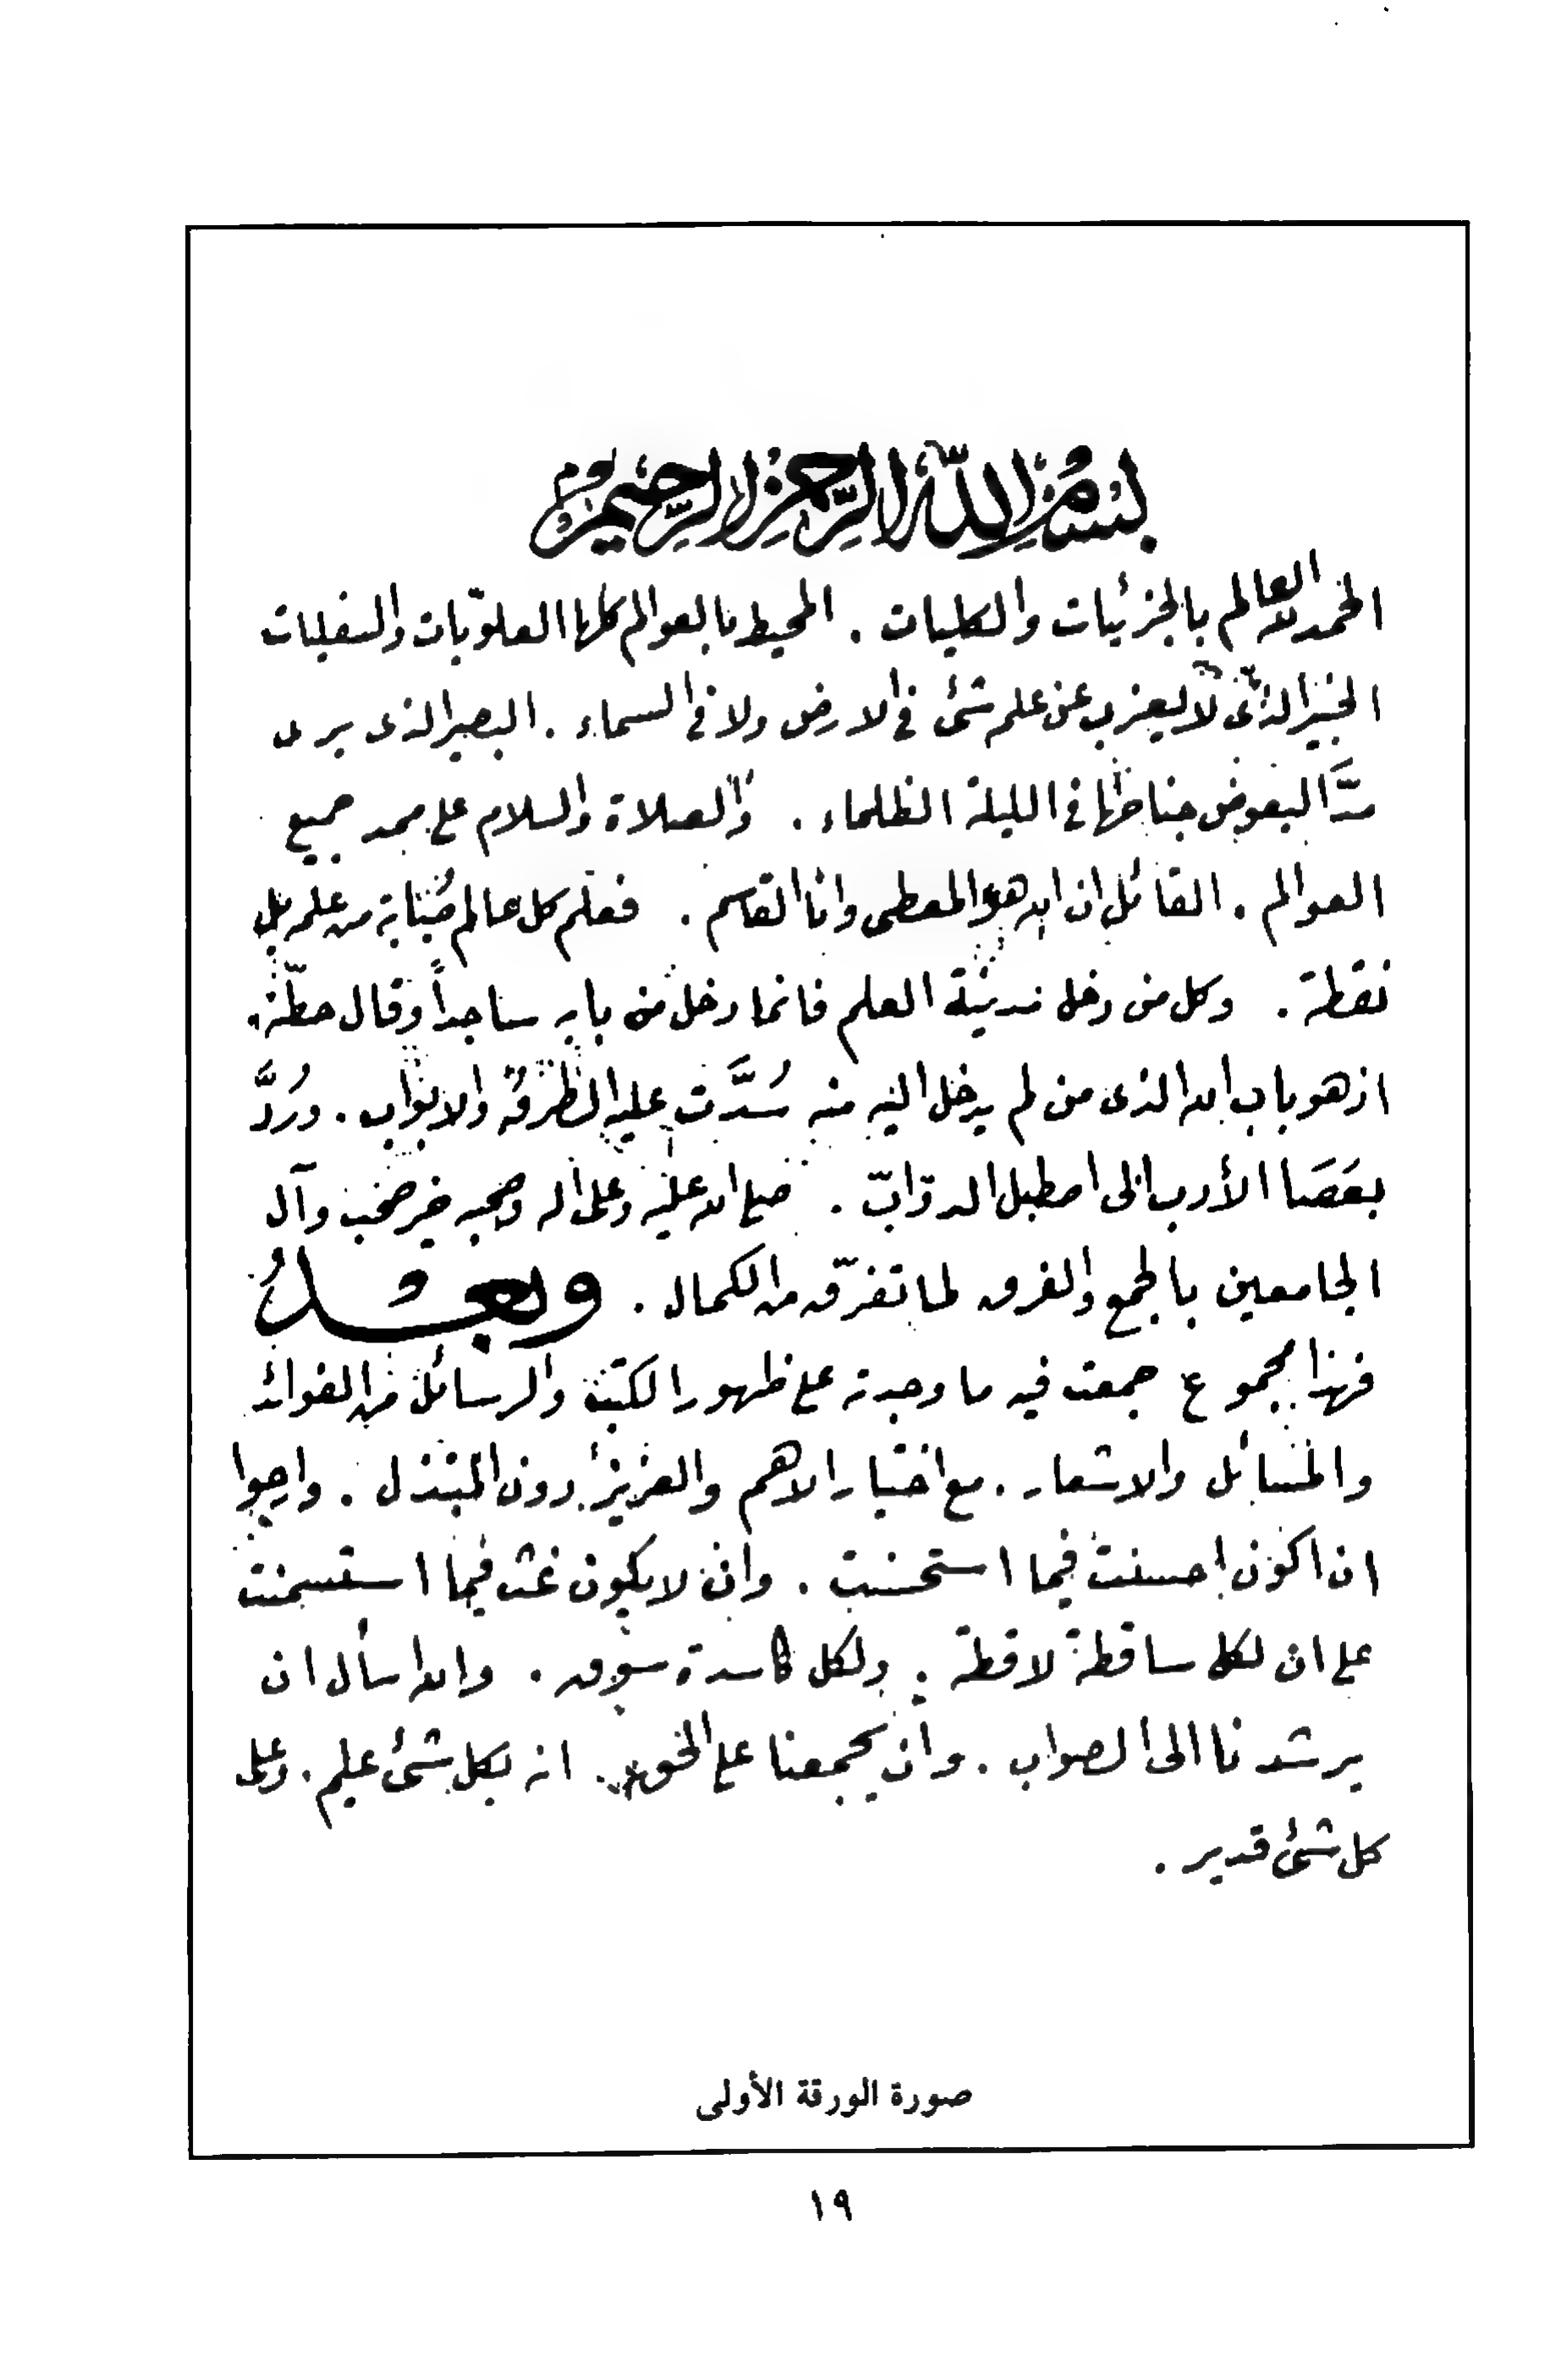 بسم الله الرحمن الرحيم
الحمد لله العالم بالجزئيات والكليات . المحيط بالعوالم كلها العلويات والسفليات
الخبير الذى لا يعزب عن علم شئ فى الارض ولا فى السماء . البصير الذى يرى
مدَّ البعوض جناحها فى الليلة الظلماء . والصلاة والسلام على محمد جميع
العوالم . القائل ان الله هو المعطى وانا القاسم . فعلم كل عالم صُبابة من علمه بل
نقطة . وكل من دخل مدينة العلم فانما دخل من بابه ساجداً وقال حطّة .
اذ هو باب الله الذى من لم يدخل اليه منه سُدَّت عليه الطرق والابواب . ورُدَّ
بعَصَا الأدب الى اصطبل الدوّابّ . صلى الله عليه وعلى اله وصحبه خير صحب وآل
الجامعين بالجمع والفرق لما تفرّق من الكمال . وبعدُ
فهذا مجموع جمعت فيه ما وجدته على ظهور الكتب والرسائل من الفوائد
والمسائل والاشعار . مع اختيار الاهم والعزيز دون المبتذل . وارجوا
ان اكون احسنت فيما استحسنت . وان لا يكون غث فيما استسمنت
على ان لكل ساقطة لاقطة . ولكل كاسدة سوق . والله اسأل ان
يرشدنا الى الصواب . وان يجمعنا على الحق . انه بكل شئ عليم . وعلى
كل شئ قدير .
صورة الورقة الأولى
١٩